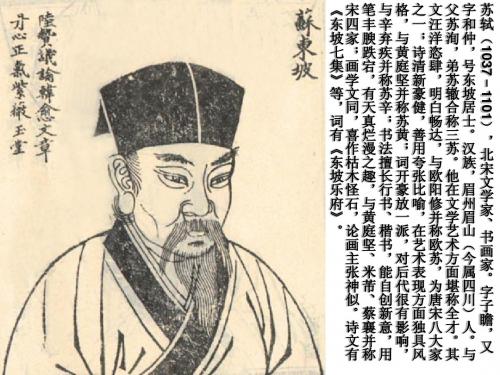 苏轼（1037－1101），北宋文学家、书画家。字子瞻，又
字和仲，号东坡居士。汉族，眉州眉山（今属四川）人。与
父苏洵，弟苏辙合称三苏。他在文学艺术方面堪称全才。其
文汪洋恣肆，明白畅达，与欧阳修并称欧苏，为唐宋八大家
之一；诗清新豪健，善用夸张比喻，在艺术表现方面独具风
格，与黄庭坚并称苏黄；词开豪放一派，对后代很有影响，
与辛弃疾并称苏辛；书法擅长行书、楷书，能自创新意，用
笔丰腴跌宕，有天真烂漫之趣，与黄庭坚、米芾、蔡襄并称
宋四家；画学文同，喜作枯木怪石，论画主张神似。诗文有
《东坡七集》等，词有《东坡乐府》。
蘇東坡
陸贄議論韓愈文章
丹心正氣紫玉堂